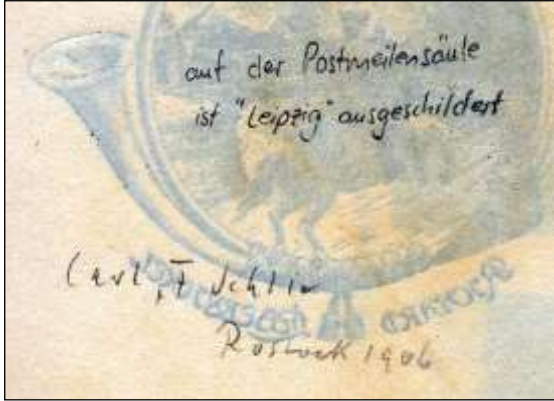 auf der Postmeilensäule
ist "Leipzig" ausgeschildert
Carl
Rostock 1906